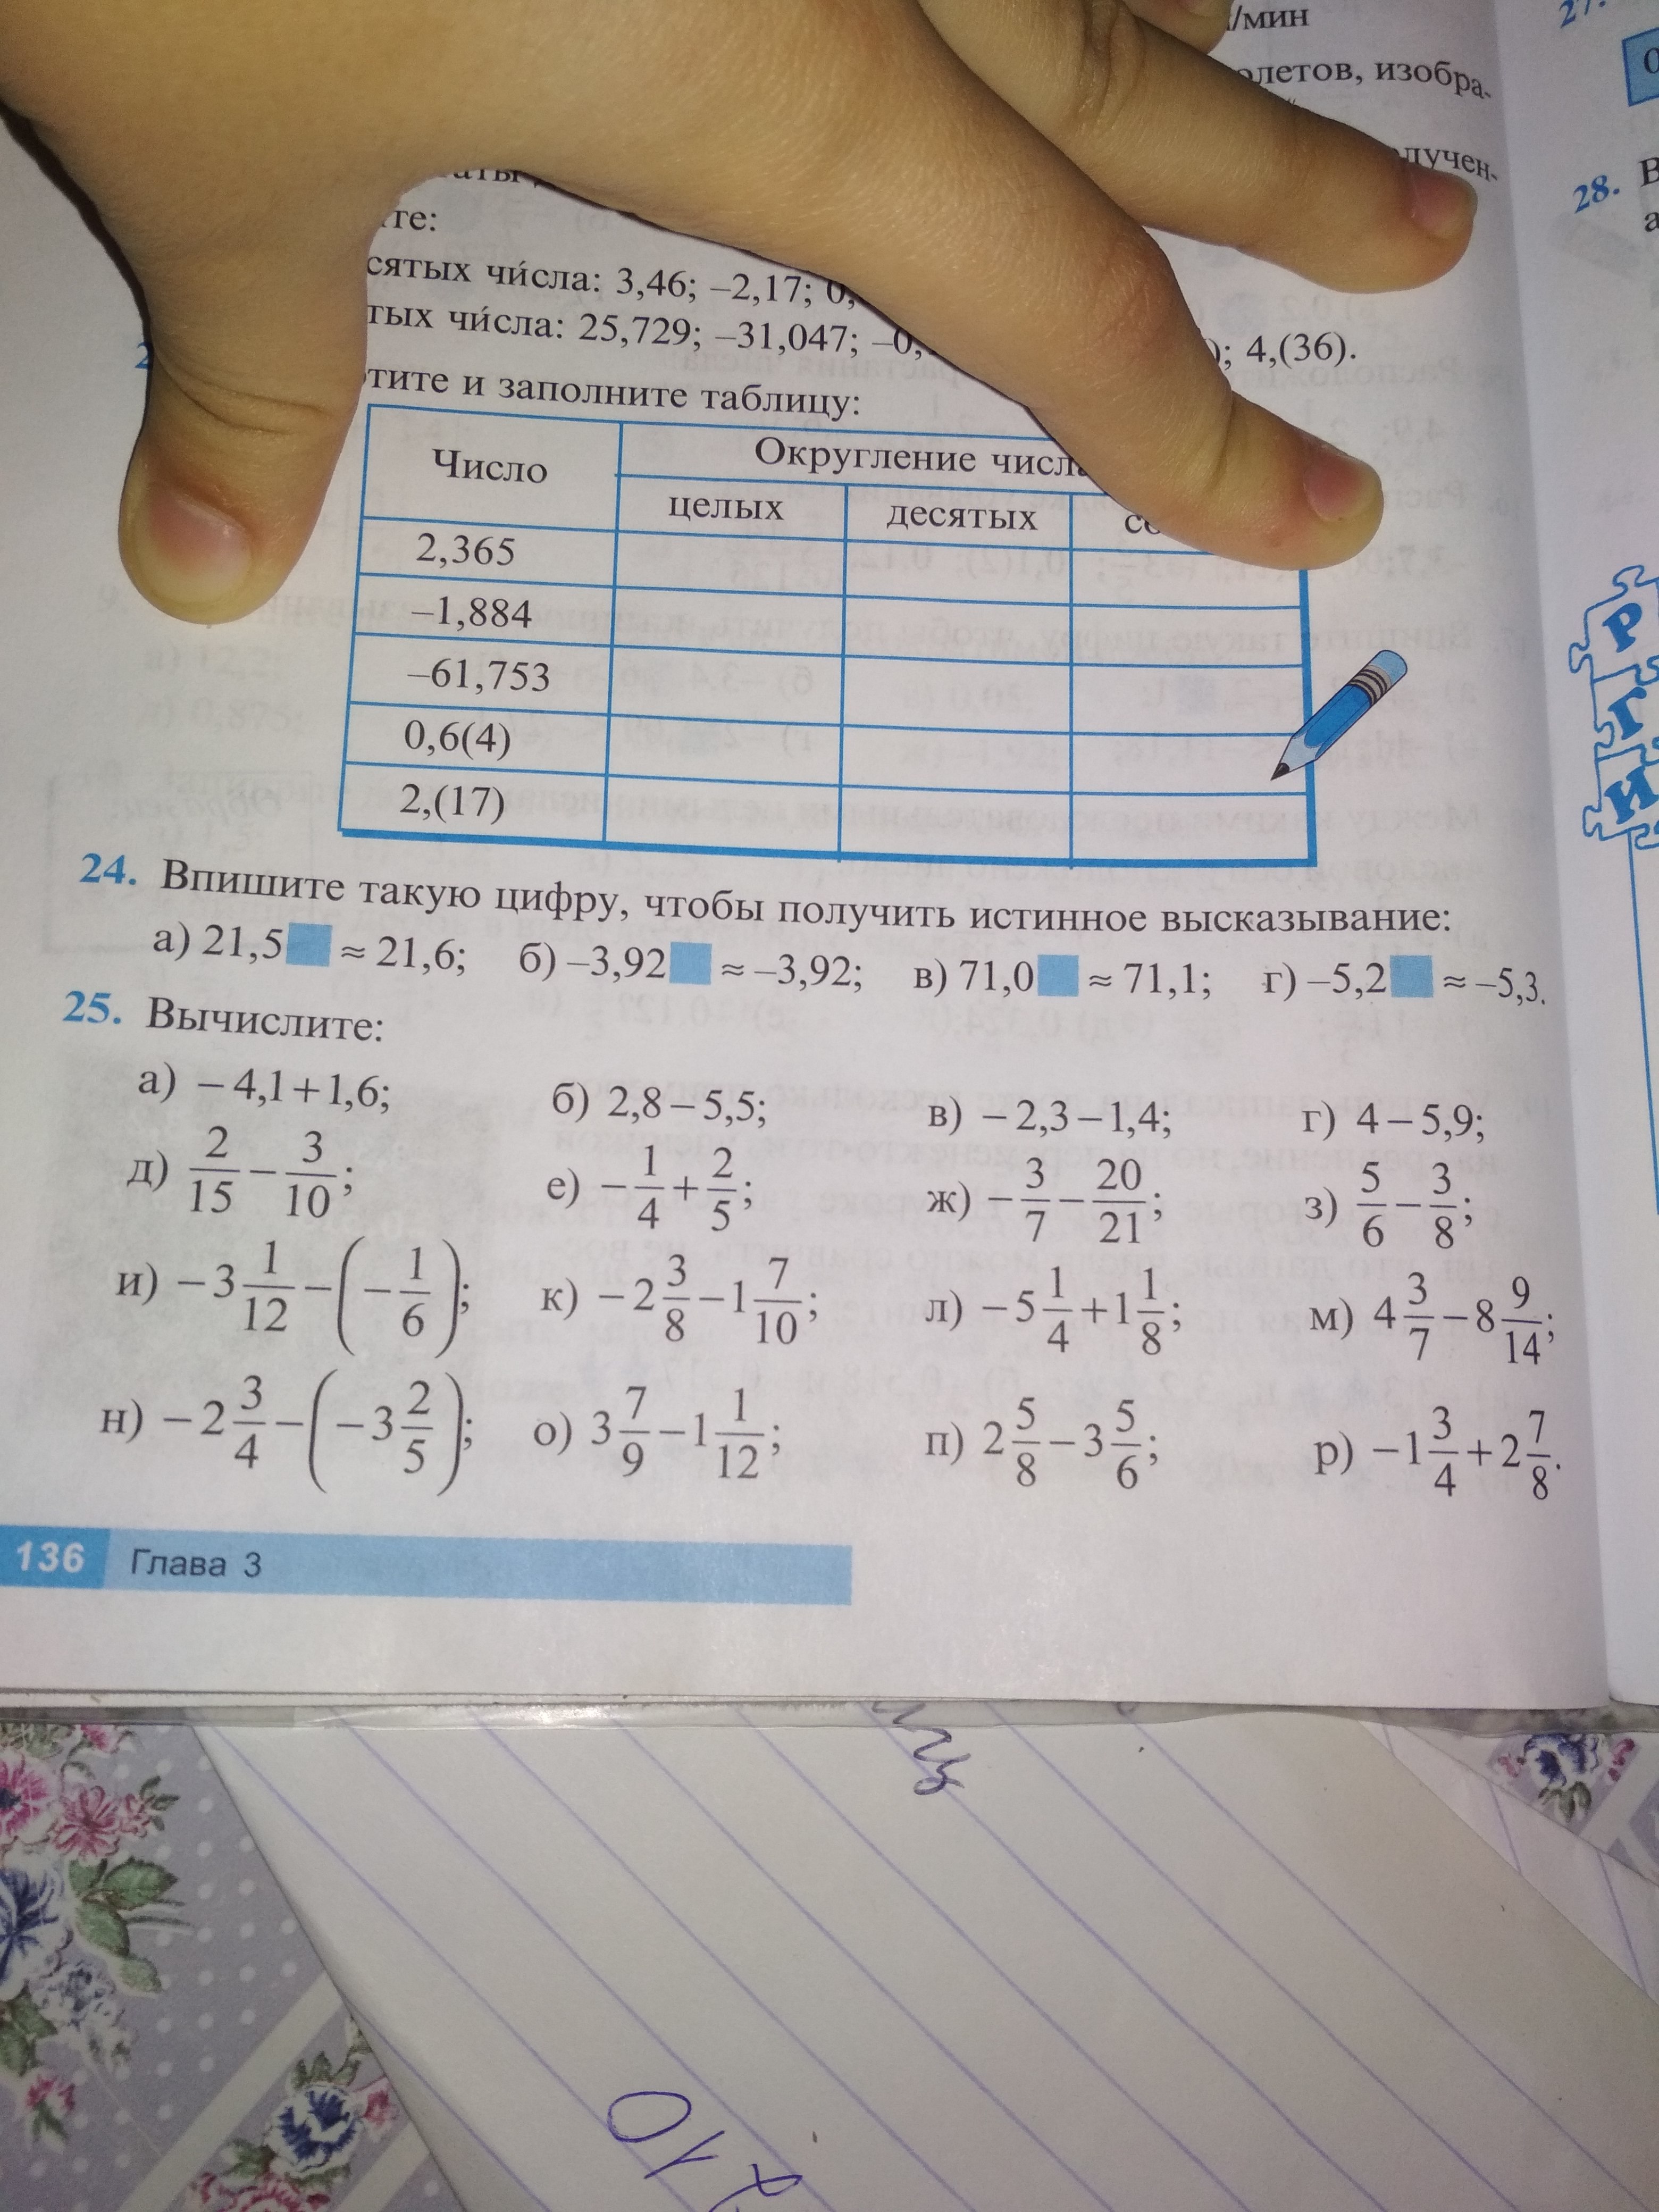 /мин
изобра-
те:
сятых чи́сла: 3,46; –2,17; 0,
тых чи́сла: 25,729; –31,047; –0, ); 4,(36).
тите и заполните таблицу:
Число
Округление числа
целых десятых
2,365
–1,884
–61,753
0,6(4)
2,(17)
24. Впишите такую цифру, чтобы получить истинное высказывание:
а) 21,5 ≈ 21,6; б) –3,92 ≈ –3,92; в) 71,0 ≈ 71,1; г) –5,2 ≈ –5,3.
25. Вычислите:
а) –4,1+1,6; б) 2,8–5,5; в) –2,3–1,4; г) 4–5,9;
д) 2/15 – 3/10; е) –1/4 + 2/5; ж) –3/7 – 20/21; з) 5/6 – 3/8;
и) –3 1/12 – (–1/6); к) –2 3/8 – 1 7/10; л) –5 1/4 + 1 1/8; м) 4 3/7 – 8 9/14;
н) –2 3/4 – (–3 2/5); о) 3 7/9 – 1 1/12; п) 2 5/8 – 3 5/6; р) –1 3/4 + 2 7/8.
136 Глава 3
28. В
а
Р
Г
И